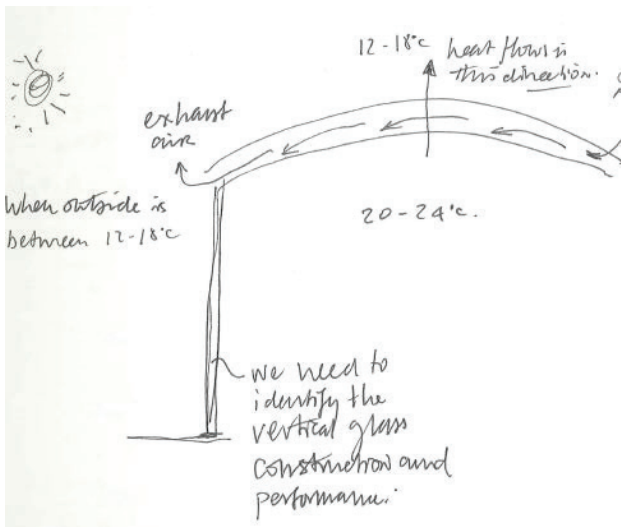 12-18°c heat flows in
this direction.
exhaust
air
When outside is
between 12-18°c
20-24°c.
we need to
identify the
vertical glass
construction and
performance.